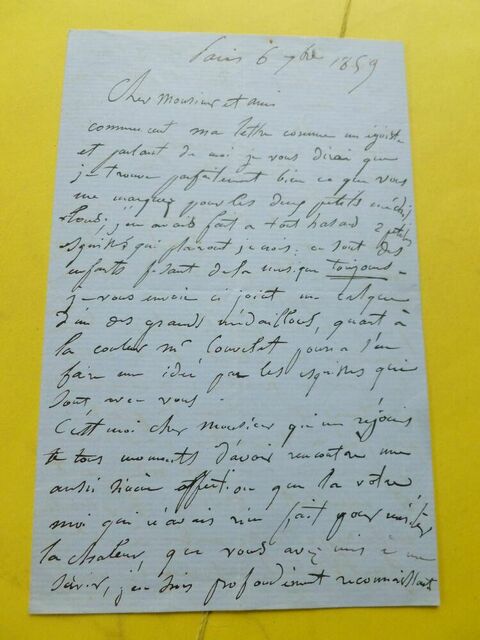 Paris 6 7bre 1859
Cher Monsieur et ami
commencant ma lettre comme un égoiste
et parlant de moi je vous dirai que
je trouve parfaitement bien ce que vous
me marquez pour les deux petits médail
lons; j'en avais fait a tout hasard 2 petites
esquisses qui plairont je crois. ce sont des
enfants faisant de la musique toujours.
je vous envoie ci joint un calque
d'un des grands médaillons, quant à
la couleur Mr pourra s'en
faire une idée par les esquisses qui
sont avec vous.
C'est moi cher Monsieur qui me réjouis
à tous moments d'avoir rencontré une
aussi affection que la votre
moi qui n'avais rien fait pour mériter
la chaleur, que vous avez mis à me
servir, j'en suis profondément reconnaissant